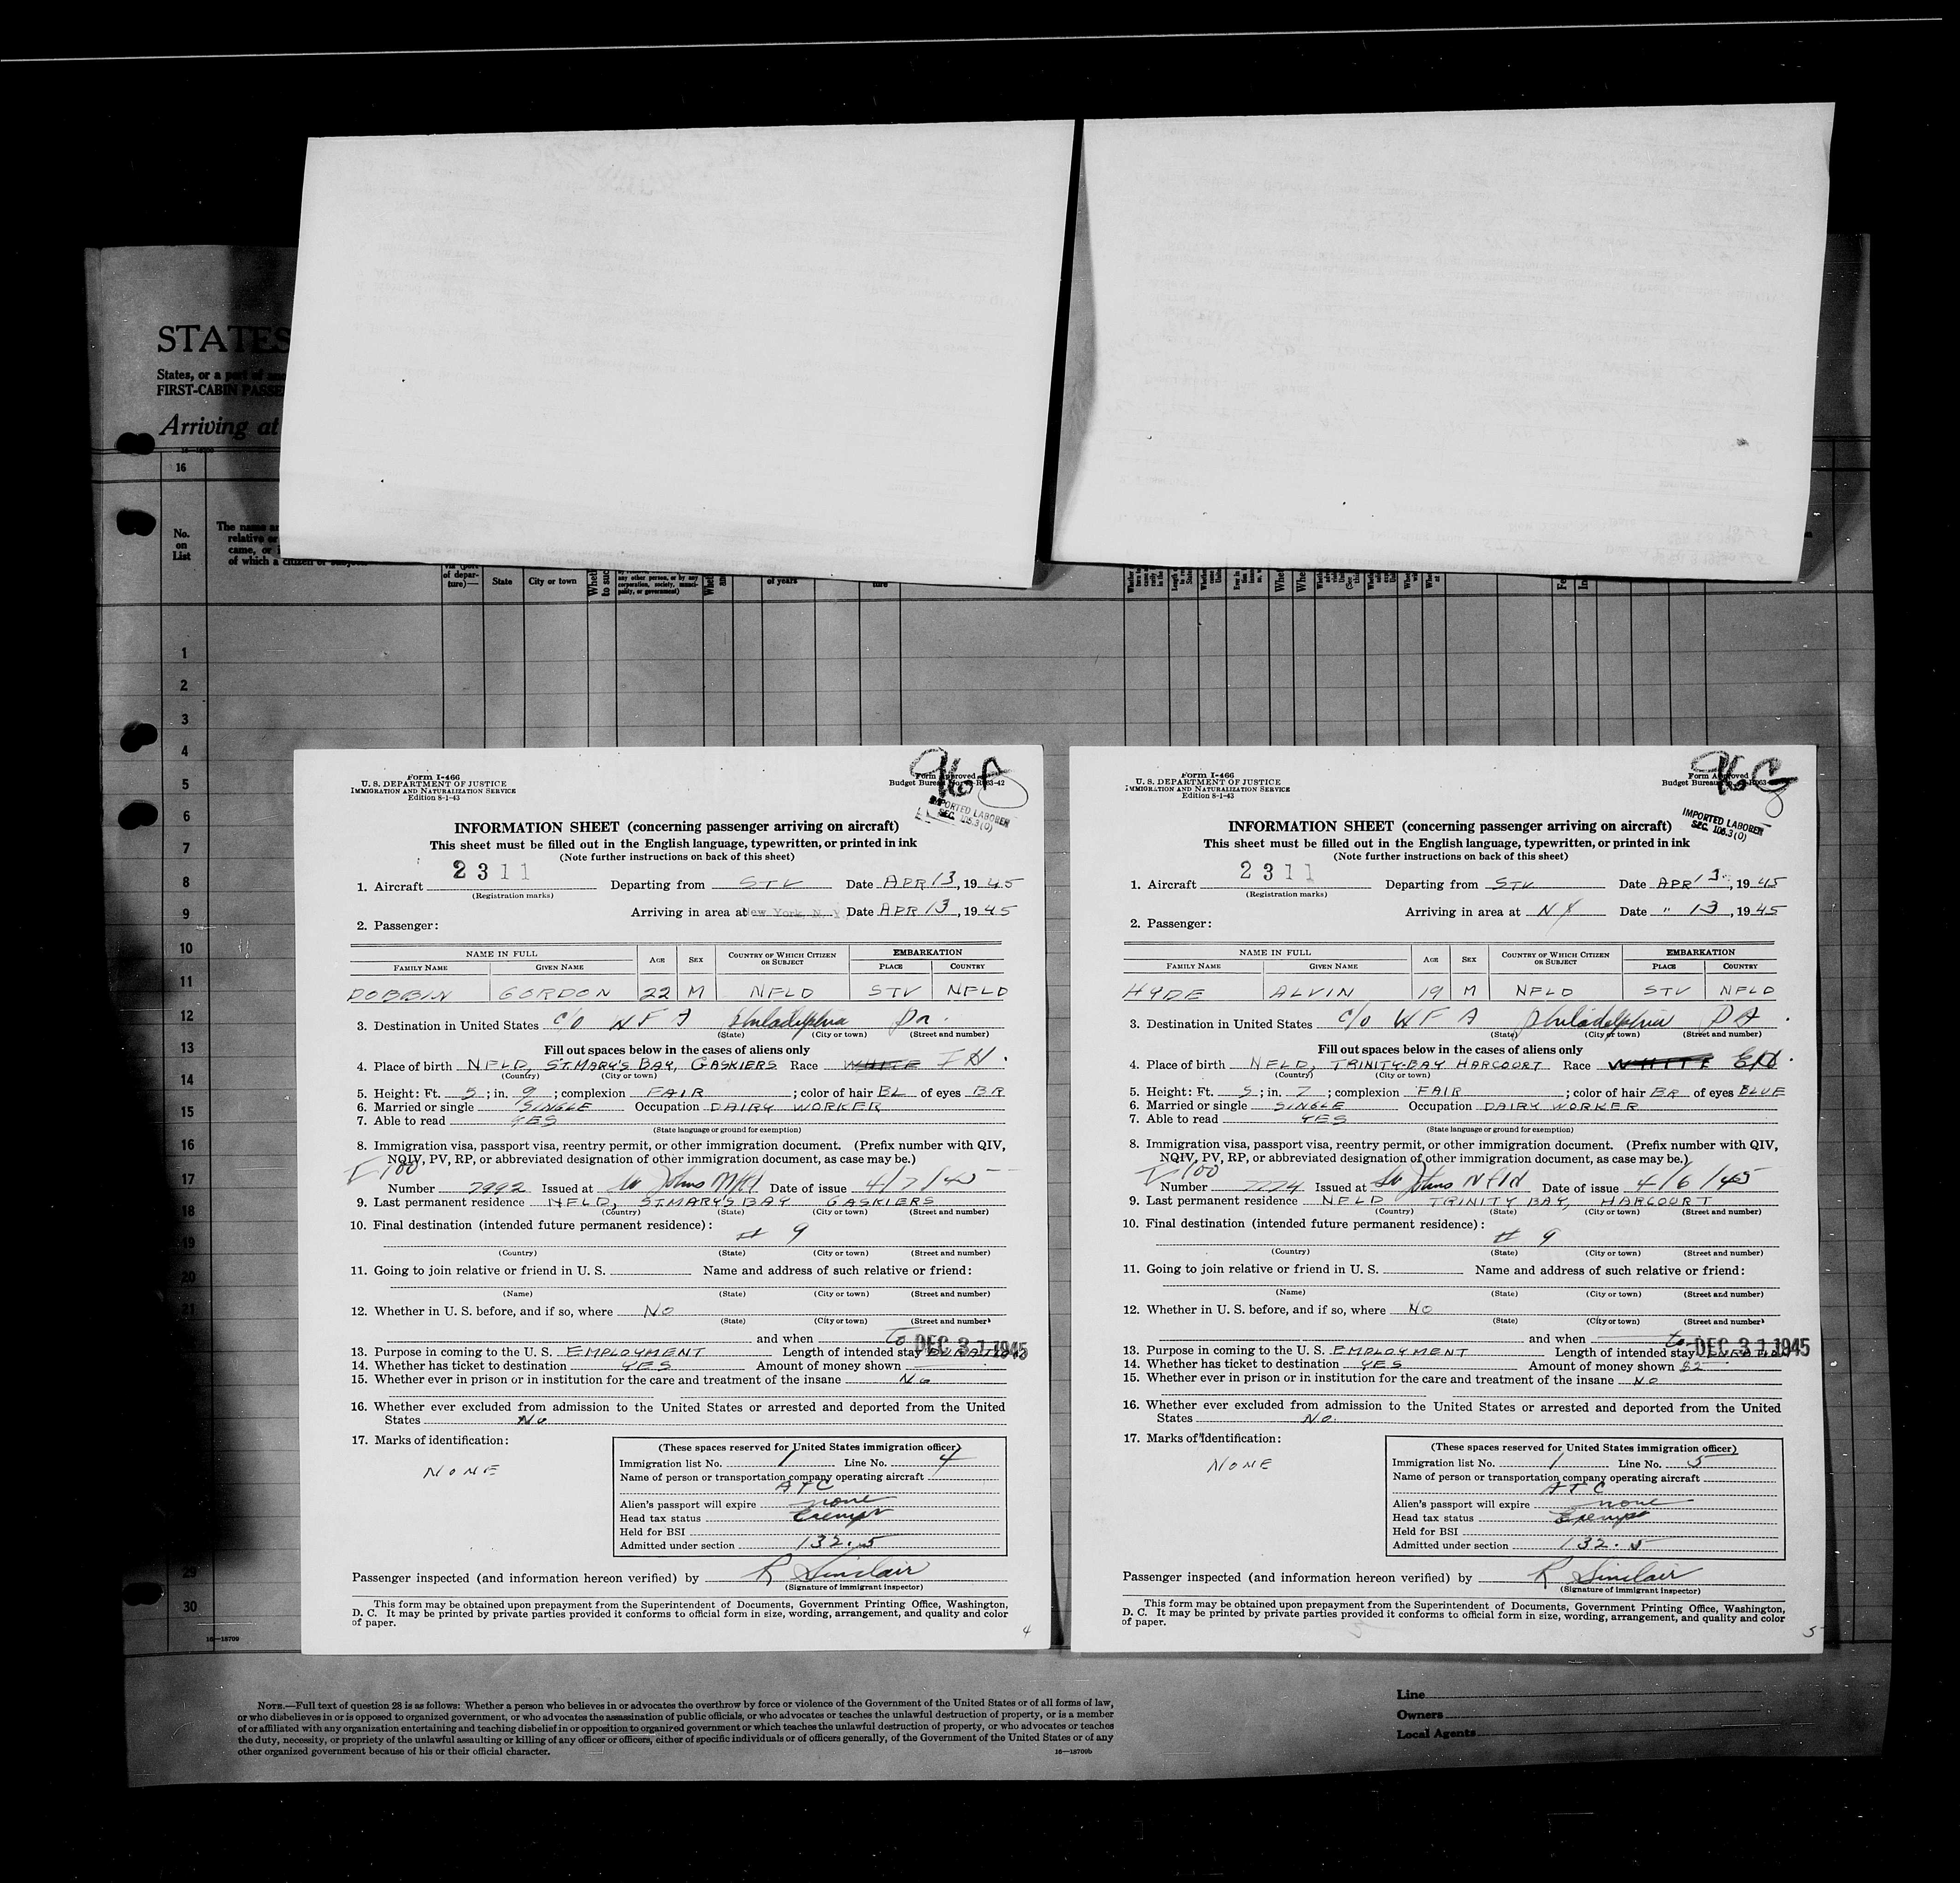 STATES
States, or a part of
FIRST-CABIN PASSE
Arriving at
16
No.
on
List
The name an
relative or
came, or i
of which a citizen or subject
via (port
of depar-
ture)—
State
City or town
any other person, or by any
corporation, society, munici-
pality, or government)
of years
ture
1
2
3
4
5
6
7
8
9
10
11
12
13
14
15
16
17
18
19
20
21
29
30
16—18709
Form I-466
U. S. DEPARTMENT OF JUSTICE
IMMIGRATION AND NATURALIZATION SERVICE
Edition 8-1-43
Form Approved
Budget Bureau No. 43-R063-42
IMPORTED LABORER
SEC. 105.3 (O)
INFORMATION SHEET (concerning passenger arriving on aircraft)
This sheet must be filled out in the English language, typewritten, or printed in ink
(Note further instructions on back of this sheet)
1. Aircraft 2311 Departing from STV Date APR 13, 1945
(Registration marks)
Arriving in area at New York, N. Y. Date APR 13, 1945
2. Passenger:
NAME IN FULL AGE SEX COUNTRY OF WHICH CITIZEN OR SUBJECT EMBARKATION
FAMILY NAME GIVEN NAME PLACE COUNTRY
DOBBIN GORDON 22 M NFLD STV NFLD
3. Destination in United States c/o WFA Philadelphia Pa.
(State) (City or town) (Street and number)
Fill out spaces below in the cases of aliens only
4. Place of birth NFLD, ST.MARY'S BAY, GASKIERS Race WHITE
(Country) (City or town)
5. Height: Ft. 5; in. 9; complexion FAIR; color of hair BL of eyes BR
6. Married or single SINGLE Occupation DAIRY WORKER
7. Able to read YES
(State language or ground for exemption)
8. Immigration visa, passport visa, reentry permit, or other immigration document. (Prefix number with QIV,
NQIV, PV, RP, or abbreviated designation of other immigration document, as case may be.)
I-100
Number 7992 Issued at St Johns Nfld Date of issue 4/7/45
9. Last permanent residence NFLD, ST.MARY'S BAY GASKIERS
(Country) (State) (City or town) (Street and number)
10. Final destination (intended future permanent residence):
# 9
(Country) (State) (City or town) (Street and number)
11. Going to join relative or friend in U. S. Name and address of such relative or friend:
(Name) (State) (City or town) (Street and number)
12. Whether in U. S. before, and if so, where NO
(State) (City or town) (Street and number)
and when to DEC 31 1945
13. Purpose in coming to the U. S. EMPLOYMENT Length of intended stay DURATION
14. Whether has ticket to destination YES Amount of money shown
15. Whether ever in prison or in institution for the care and treatment of the insane No
16. Whether ever excluded from admission to the United States or arrested and deported from the United
States No
17. Marks of identification:
NONE
(These spaces reserved for United States immigration officer)
Immigration list No. 1 Line No. 4
Name of person or transportation company operating aircraft
ATC
Alien's passport will expire none
Head tax status Exempt
Held for BSI
Admitted under section 132.5
Passenger inspected (and information hereon verified) by R Sinclair
(Signature of immigrant inspector)
This form may be obtained upon prepayment from the Superintendent of Documents, Government Printing Office, Washington,
D. C. It may be printed by private parties provided it conforms to official form in size, wording, arrangement, and quality and color
of paper.
4
Form I-466
U. S. DEPARTMENT OF JUSTICE
IMMIGRATION AND NATURALIZATION SERVICE
Edition 8-1-43
Form Approved
Budget Bureau
IMPORTED LABORER
SEC. 105.3 (O)
INFORMATION SHEET (concerning passenger arriving on aircraft)
This sheet must be filled out in the English language, typewritten, or printed in ink
(Note further instructions on back of this sheet)
1. Aircraft 2311 Departing from STV Date APR 13, 1945
(Registration marks)
Arriving in area at NY Date " 13, 1945
2. Passenger:
NAME IN FULL AGE SEX COUNTRY OF WHICH CITIZEN OR SUBJECT EMBARKATION
FAMILY NAME GIVEN NAME PLACE COUNTRY
HYDE ALVIN 19 M NFLD STV NFLD
3. Destination in United States c/o WFA Philadelphia PA
(State) (City or town) (Street and number)
Fill out spaces below in the cases of aliens only
4. Place of birth NFLD, TRINITY-BAY HARCOURT Race WHITE
(Country) (City or town)
5. Height: Ft. 5; in. 7; complexion FAIR; color of hair BR of eyes BLUE
6. Married or single SINGLE Occupation DAIRY WORKER
7. Able to read YES
(State language or ground for exemption)
8. Immigration visa, passport visa, reentry permit, or other immigration document. (Prefix number with QIV,
NQIV, PV, RP, or abbreviated designation of other immigration document, as case may be.)
I-100
Number 7774 Issued at St Johns Nfld Date of issue 4/6/45
9. Last permanent residence NFLD TRINITY BAY, HARCOURT
(Country) (State) (City or town) (Street and number)
10. Final destination (intended future permanent residence):
# 9
(Country) (State) (City or town) (Street and number)
11. Going to join relative or friend in U. S. Name and address of such relative or friend:
(Name) (State) (City or town) (Street and number)
12. Whether in U. S. before, and if so, where NO
(State) (City or town) (Street and number)
and when to DEC 31 1945
13. Purpose in coming to the U. S. EMPLOYMENT Length of intended stay DURATION
14. Whether has ticket to destination YES Amount of money shown $2
15. Whether ever in prison or in institution for the care and treatment of the insane NO
16. Whether ever excluded from admission to the United States or arrested and deported from the United
States No.
17. Marks of Identification:
NONE
(These spaces reserved for United States immigration officer)
Immigration list No. 1 Line No. 5
Name of person or transportation company operating aircraft
ATC
Alien's passport will expire none
Head tax status Exempt
Held for BSI
Admitted under section 132.5
Passenger inspected (and information hereon verified) by R Sinclair
(Signature of immigrant inspector)
This form may be obtained upon prepayment from the Superintendent of Documents, Government Printing Office, Washington,
D. C. It may be printed by private parties provided it conforms to official form in size, wording, arrangement, and quality and color
of paper.
5
NOTE.—Full text of question 28 is as follows: Whether a person who believes in or advocates the overthrow by force or violence of the Government of the United States or of all forms of law,
or who disbelieves in or is opposed to organized government, or who advocates the assassination of public officials, or who advocates or teaches the unlawful destruction of property, or is a member
of or affiliated with any organization entertaining and teaching disbelief in or opposition to organized government or which teaches the unlawful destruction of property, or who advocates or teaches
the duty, necessity, or propriety of the unlawful assaulting or killing of any officer or officers, either of specific individuals or of officers generally, of the Government of the United States or of any
other organized government because of his or their official character.
16—18709b
Line
Owners
Local Agents